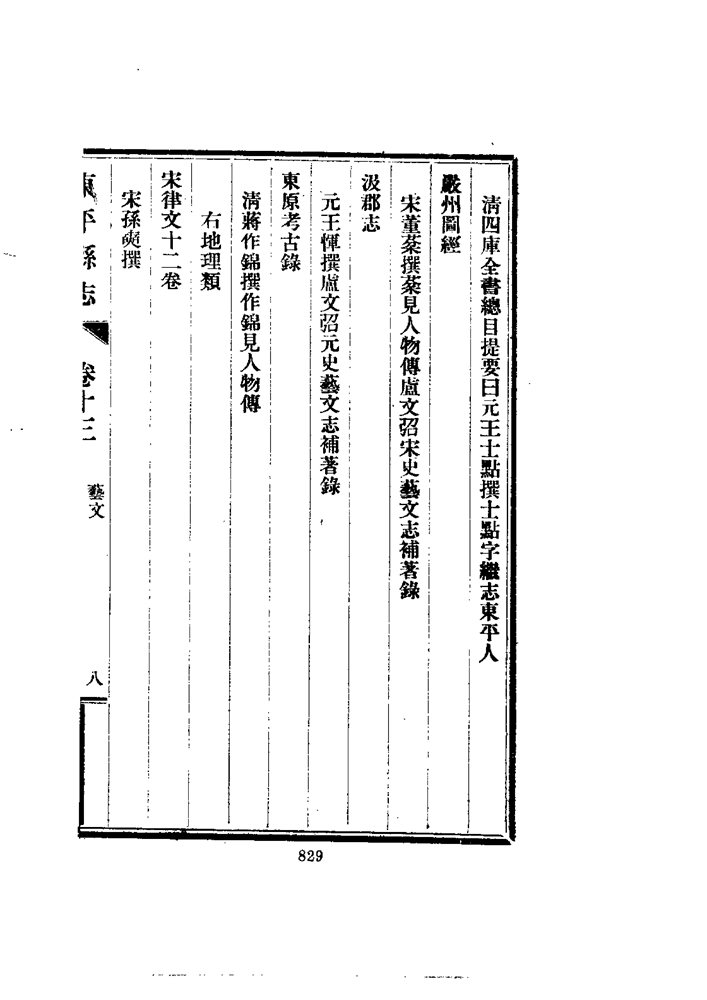 清四庫全書總目提要曰元王士點撰士點字繼志東平人
嚴州圖經
宋董棻撰棻見人物傳盧文弨宋史藝文志補著錄
汲郡志
元王惲撰盧文弨元史藝文志補著錄
東原考古錄
清蔣作錦撰作錦見人物傳
右地理類
宋律文十二卷
宋孫奭撰
東平縣志 卷十三 藝文 八
829